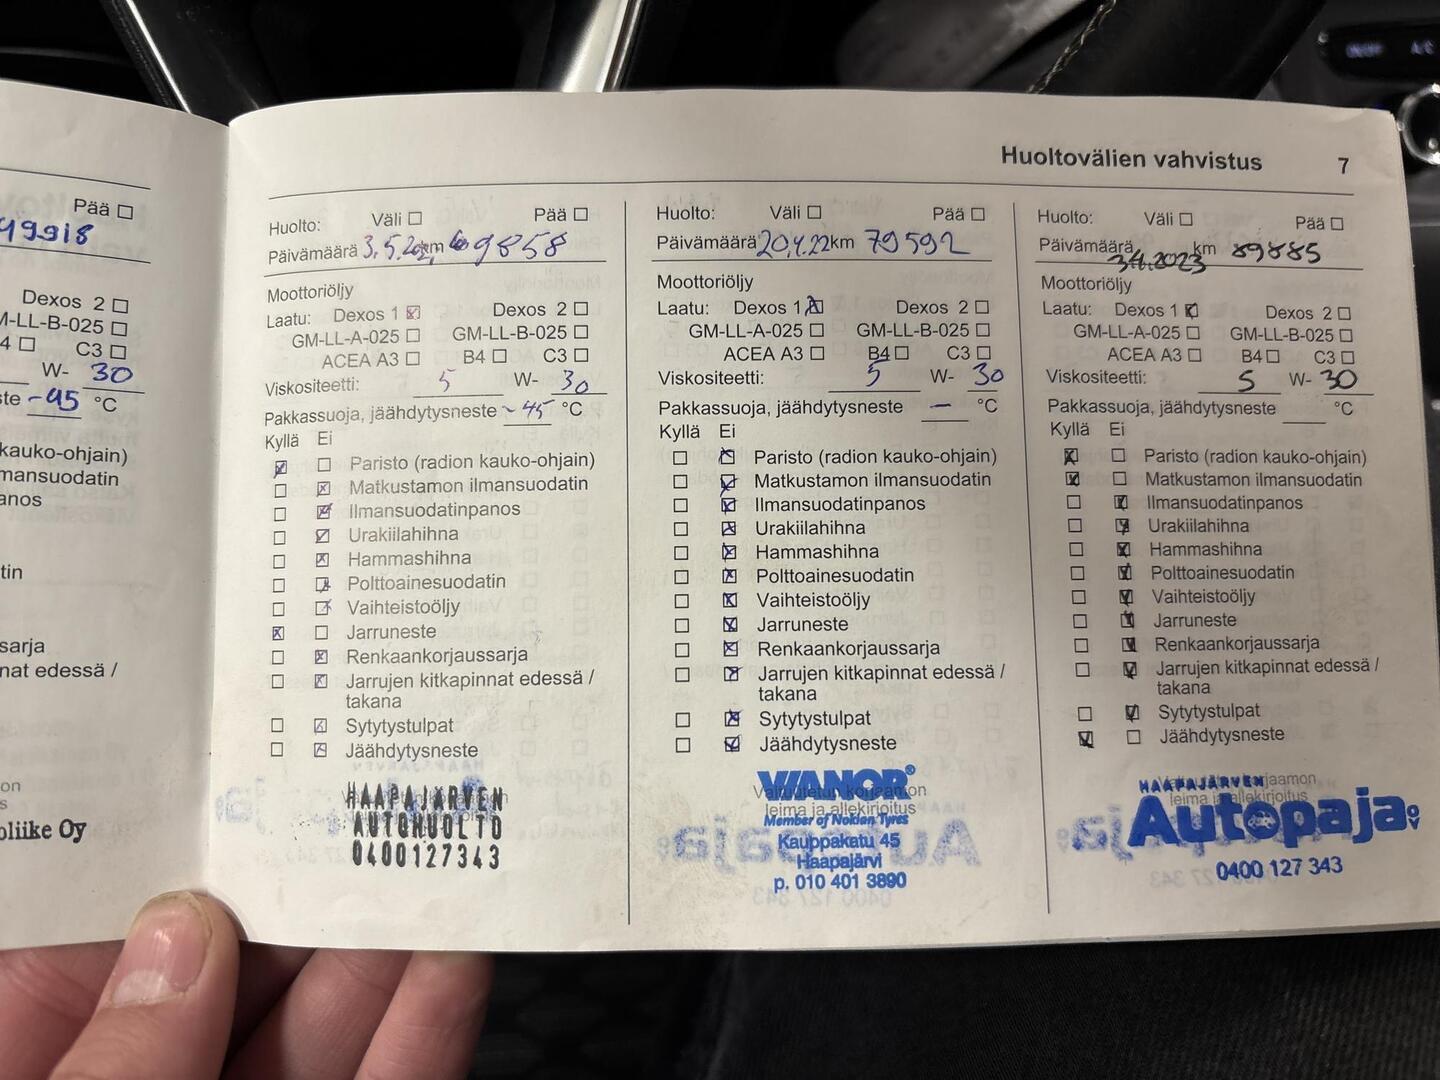 Pää
49918
Dexos 2
M-LL-B-025
C3
W- 30
-45 °C
kauko-ohjain)
sarja
oliike Oy
Huoltovälien vahvistus 7
Huolto: Väli Pää
Päivämäärä km 69858
Moottoriöljy
Laatu: Dexos 1 Dexos 2
GM-LL-A-025 GM-LL-B-025
ACEA A3 B4 C3
Viskositeetti: 5 W- 30
Pakkassuoja, jäähdytysneste -45 °C
Kyllä Ei
Paristo (radion kauko-ohjain)
Matkustamon ilmansuodatin
Ilmansuodatinpanos
Urakiilahihna
Hammashihna
Polttoainesuodatin
Vaihteistoöljy
Jarruneste
Renkaankorjaussarja
Jarrujen kitkapinnat edessä /
takana
Sytytystulpat
Jäähdytysneste
HAAPAJÄRVEN
AUTOHUOLTO
0400127343
Huolto: Väli Pää
Päivämäärä 20.4.22 km 79592
Moottoriöljy
Laatu: Dexos 1 Dexos 2
GM-LL-A-025 GM-LL-B-025
ACEA A3 B4 C3
Viskositeetti: 5 W- 30
Pakkassuoja, jäähdytysneste — °C
Kyllä Ei
Paristo (radion kauko-ohjain)
Matkustamon ilmansuodatin
Ilmansuodatinpanos
Urakiilahihna
Hammashihna
Polttoainesuodatin
Vaihteistoöljy
Jarruneste
Renkaankorjaussarja
Jarrujen kitkapinnat edessä /
takana
Sytytystulpat
Jäähdytysneste
VIANOR
Valtuutetun korjaamon
leima ja allekirjoitus
Member of Nokian Tyres
Kauppakatu 45
Haapajärvi
p. 010 401 3890
Huolto: Väli Pää
Päivämäärä km 89885
Moottoriöljy
Laatu: Dexos 1 Dexos 2
GM-LL-A-025 GM-LL-B-025
ACEA A3 B4 C3
Viskositeetti: 5 W- 30
Pakkassuoja, jäähdytysneste °C
Kyllä Ei
Paristo (radion kauko-ohjain)
Matkustamon ilmansuodatin
Ilmansuodatinpanos
Urakiilahihna
Hammashihna
Polttoainesuodatin
Vaihteistoöljy
Jarruneste
Renkaankorjaussarja
Jarrujen kitkapinnat edessä /
takana
Sytytystulpat
Jäähdytysneste
Valtuutetun korjaamon
HAAPAJÄRVEN
leima ja allekirjoitus
Autopaja OY
0400 127 343